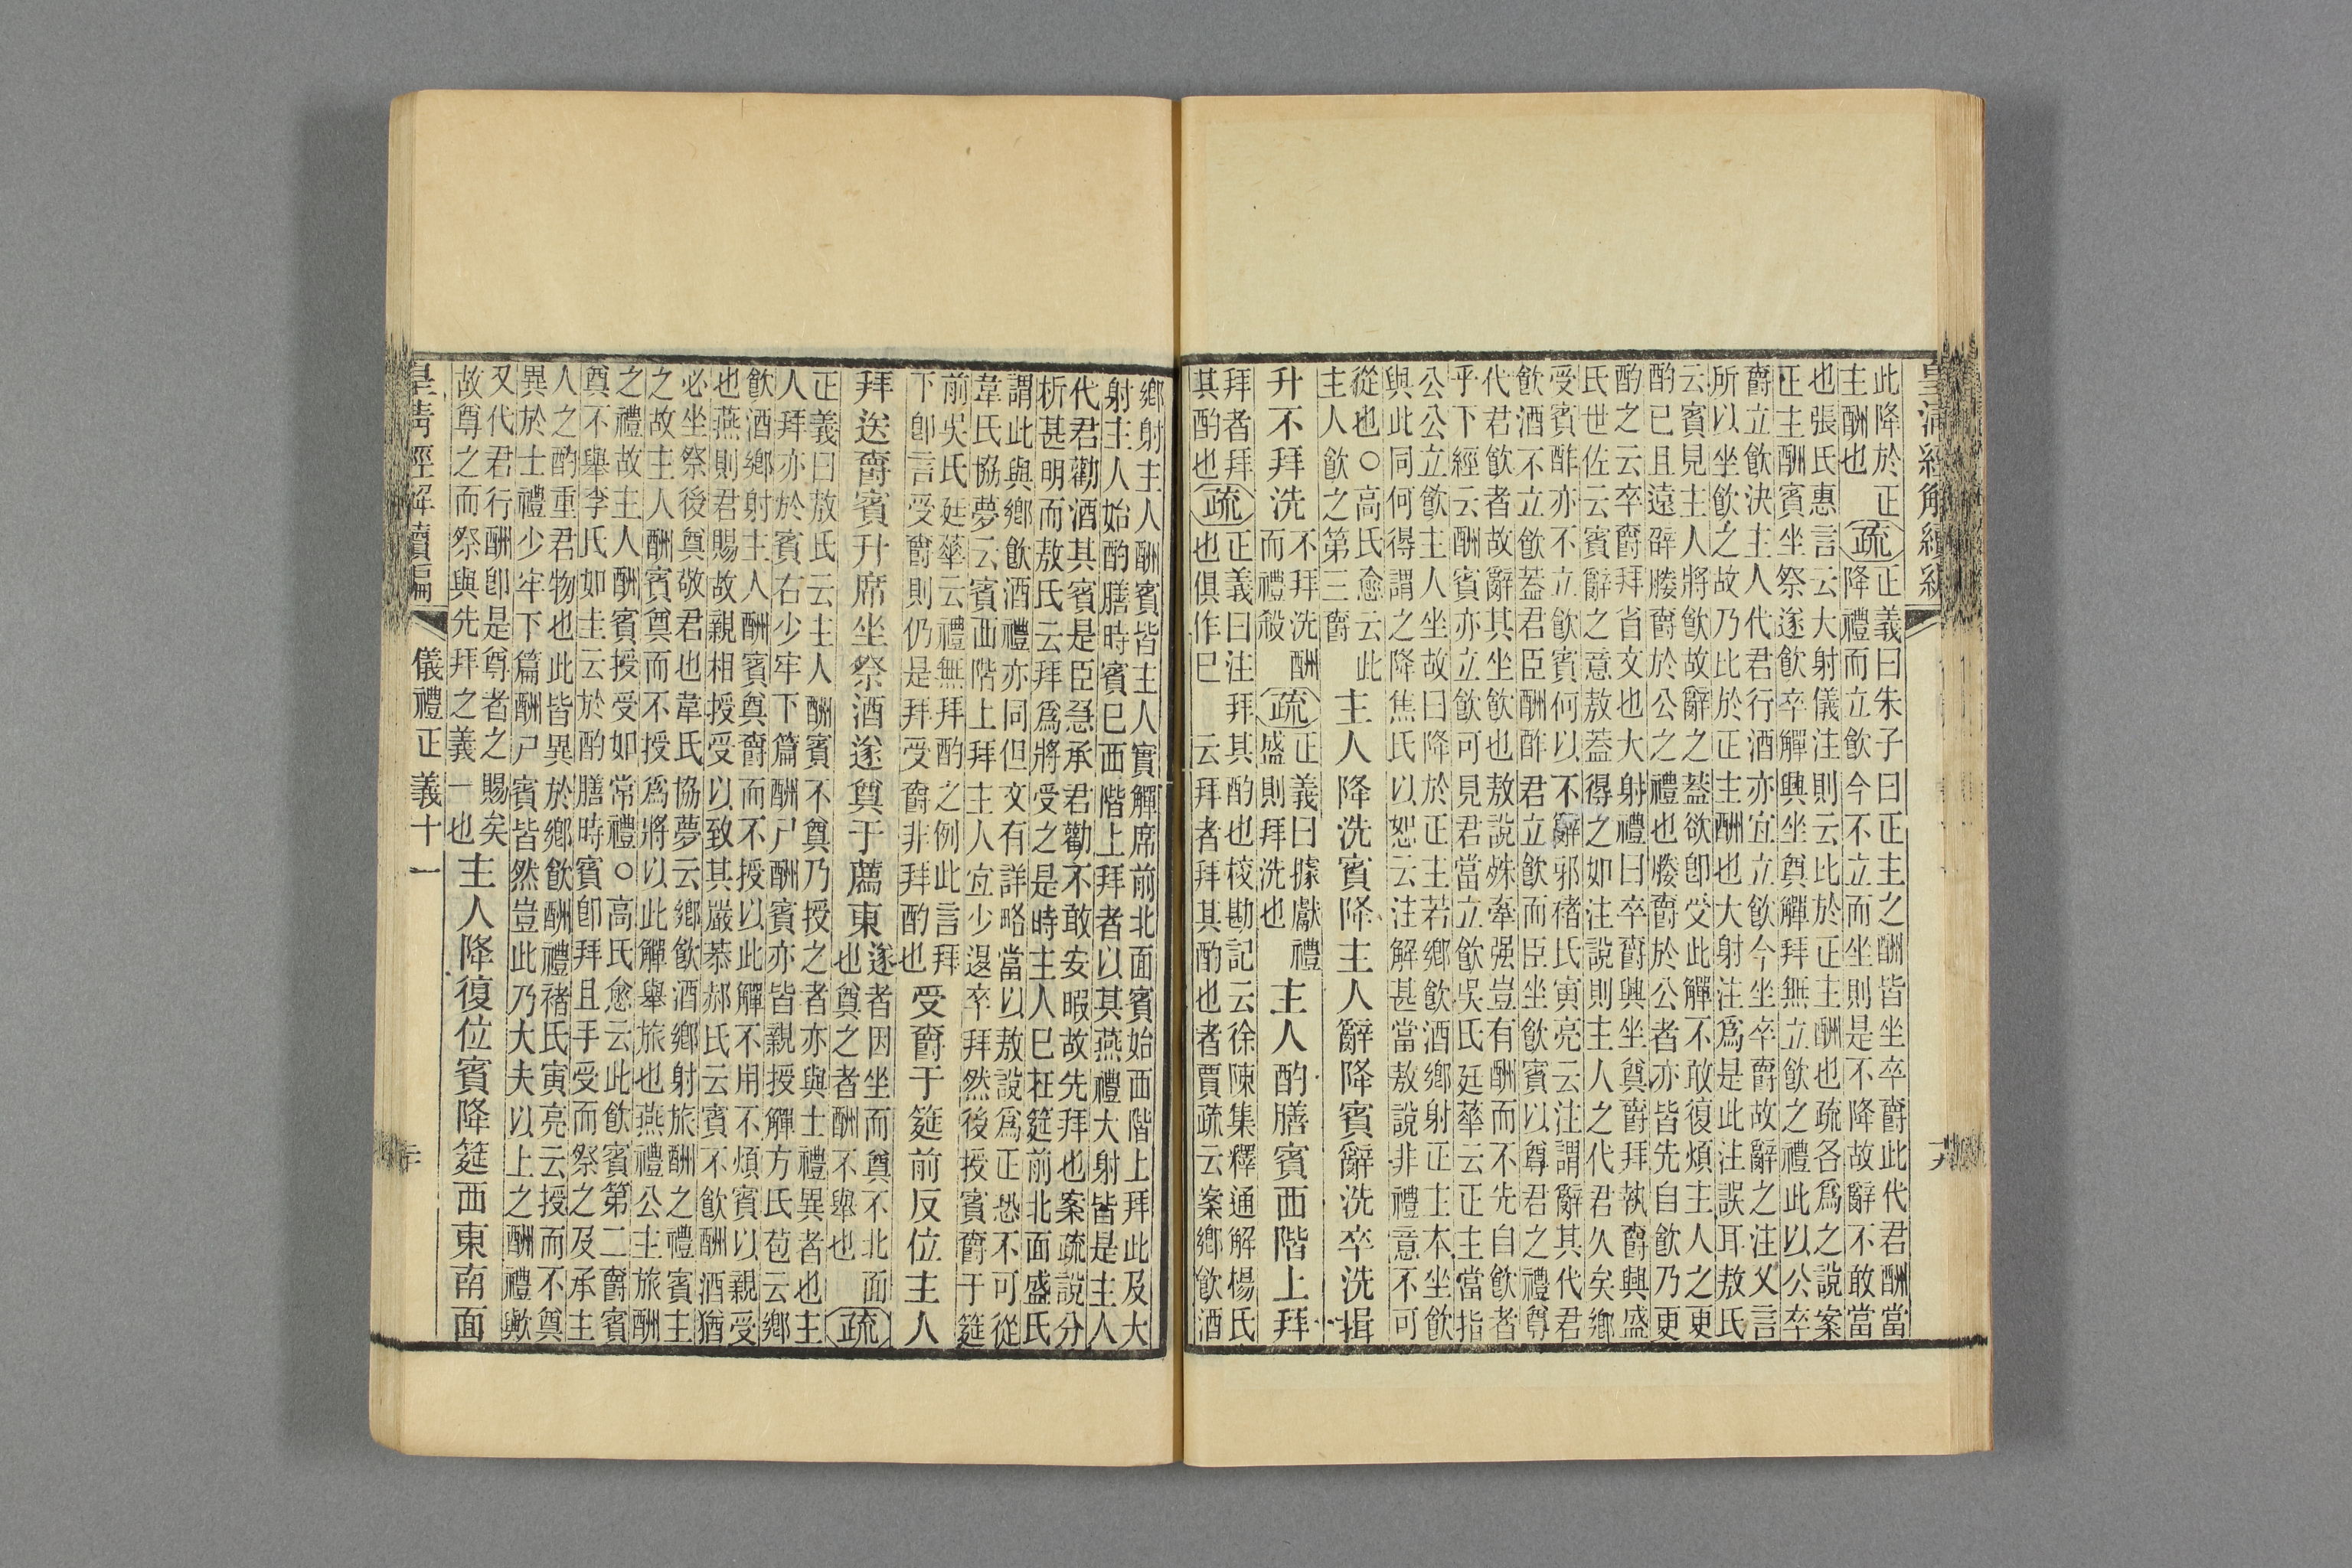 皇清經解續編
此降於正 疏 正義曰朱子曰正主之酬皆坐卒爵此代君酬當
主酬也 降禮而立飲今不立而坐則是不降故辭不敢當
也張氏惠言云大射儀注則云比於正主酬也疏各爲之說案
正主酬賓坐祭遂飲卒觶興坐奠觶拜無立飲之禮此以公卒
爵立飲決主人代君行酒亦宜立飲今坐卒爵故辭之注又言
所以坐飲之故乃比於正主酬也大射注爲是此注誤耳敖氏
云賓見主人將飲故辭之蓋欲卽受此觶不敢復煩主人之更
酌已且遠辟媵爵於公之禮也媵爵於公者亦皆先自飲乃更
酌之云卒爵拜省文也大射禮曰卒爵興坐奠爵拜執爵興盛
氏世佐云賓辭之意敖蓋得之如注說則主人之代君久矣鄉
受賓酢亦不立飲賓何以不辭邪褚氏寅亮云注謂辭其代君
飲酒不立飲蓋君臣酬酢君立飲而臣坐飲賓以尊君之禮尊
代君飲者故辭其坐飲也敖說殊牽强豈有酬而不先自飲者
乎下經云酬賓亦立飲可見君當立飲吳氏廷華云正主當指
公公立飲主人坐故曰降於正主若鄉飲酒鄉射正主本坐飲
與此同何得謂之降焦氏以恕云注解甚當敖說非禮意不可
從也○高氏愈云此
主人飲之第三爵
主人降洗賓降主人辭降賓辭洗卒洗揖
升不拜洗
不拜洗酬
而禮殺
疏
正義曰據獻禮
盛則拜洗也
主人酌膳賓西階上拜
拜者拜 疏 正義曰注拜其酌也校勘記云徐陳集釋通解楊氏
其酌也 也俱作巳 云拜者拜其酌也者賈疏云案鄉飲酒
鄉射主人酬賓皆主人實觶席前北面賓始西階上拜此及大
射主人始酌膳時賓巳西階上拜者以其燕禮大射皆是主人
代君勸酒其賓是臣急承君勸不敢安暇故先拜也案疏說分
析甚明而敖氏云拜爲將受之是時主人巳在筵前北面盛氏
謂此與鄉飲酒禮亦同但文有詳略當以敖說爲正恐不可從
韋氏協夢云賓西階上拜主人宜少退卒拜然後授賓爵于筵
前吳氏廷華云禮無拜酌之例此言拜
下卽言受爵則仍是拜受爵非拜酌也
受爵于筵前反位主人
拜送爵賓升席坐祭酒遂奠于薦東
遂者因坐而奠不北面
也奠之者酬不舉也
疏
正義曰敖氏云主人酬賓不奠乃授之者亦與士禮異者也主
人拜亦於賓右少牢下篇酬尸酬賓亦皆親授觶方氏苞云鄉
飲酒鄉射主人酬賓奠爵而不授以此觶不用不煩賓以親受
也燕則君賜故親相授受以致其嚴恭郝氏云賓不飲酬酒猶
必坐祭後奠敬君也韋氏協夢云鄉飲酒鄉射旅酬之禮賓主
之故主人酬賓奠而不授爲將以此觶舉旅也燕禮公主旅酬
之禮故主人酬賓授受如常禮○高氏愈云此飲賓第二爵賓
奠不舉李氏如圭云於酌膳時賓卽拜且手受而祭之及承主
人之酌重君物也此皆異於鄉飲酬禮褚氏寅亮云授而不奠
異於士禮少牢下篇酬尸賓皆然豈此乃大夫以上之酬禮歟
又代君行酬卽是尊者之賜矣
故尊之而祭與先拜之義一也
主人降復位賓降筵西東南面
皇清經解續編 儀禮正義十一